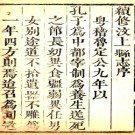 續修汶上縣志序
粵稽魯定公九年以
孔子爲中都宰制爲養生送死
之節長幼異食強弱異任男
女別途道不拾遺
年四方則焉爲司